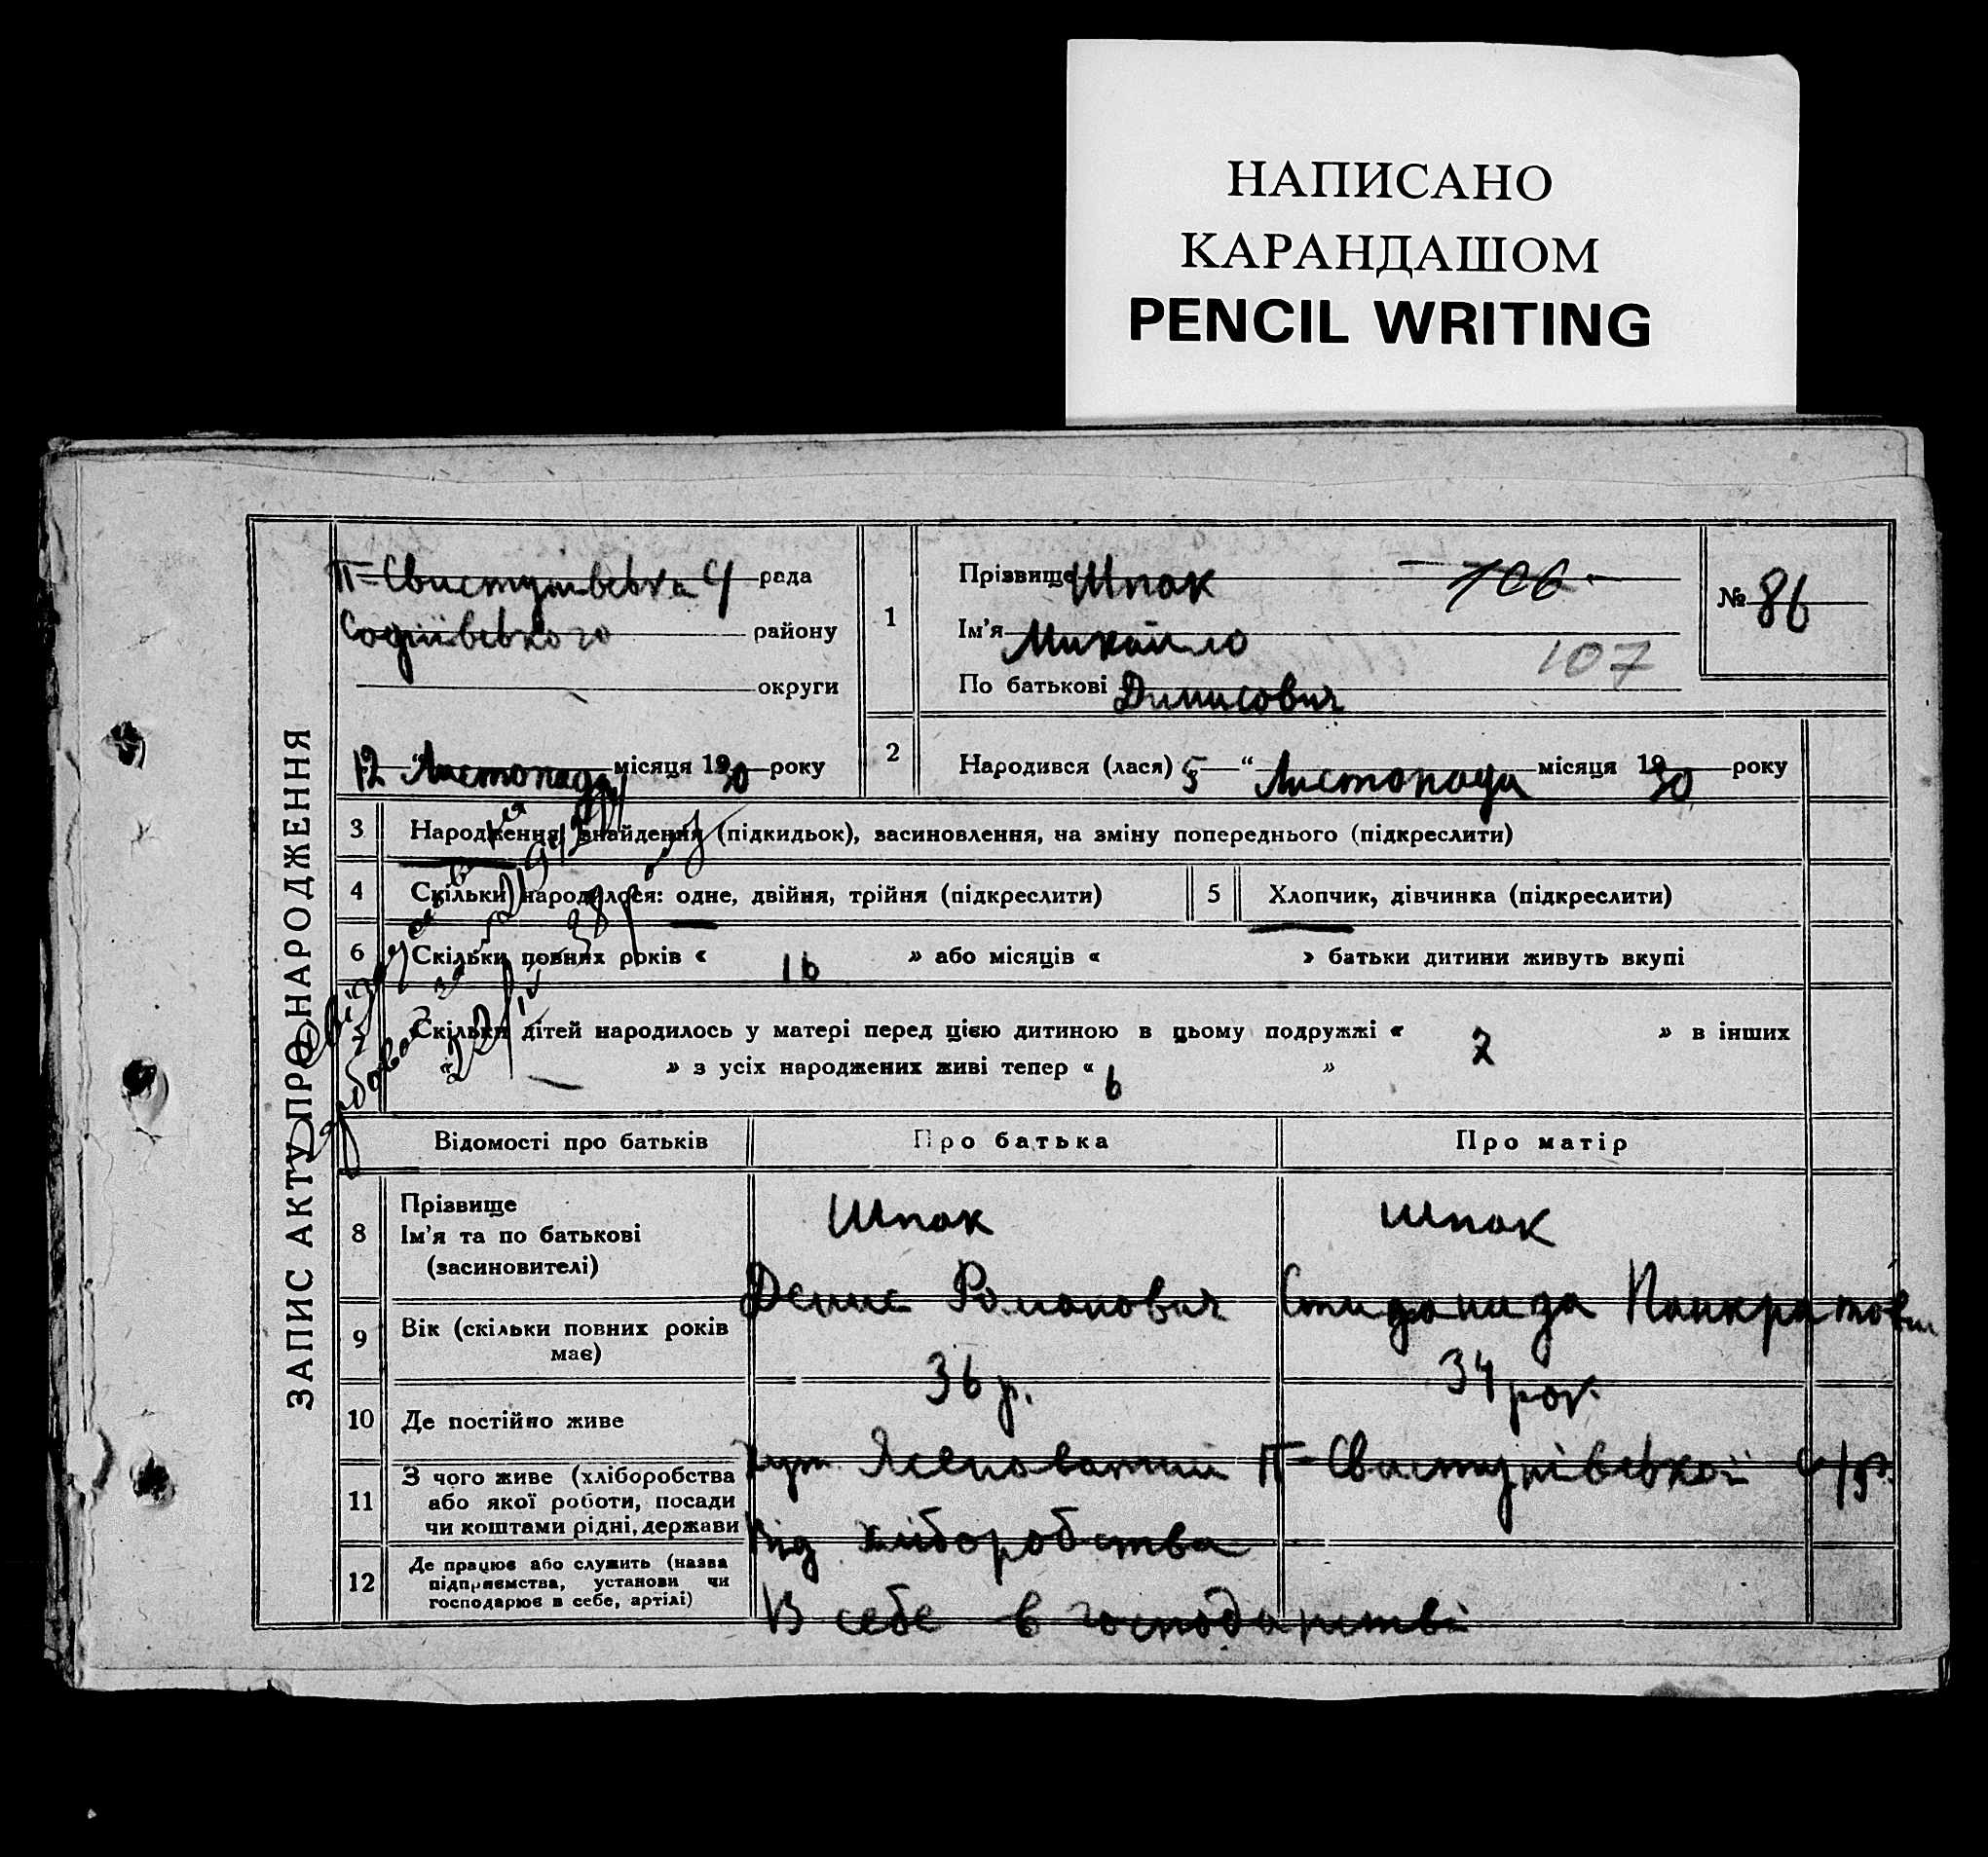 НАПИСАНО
КАРАНДАШОМ
PENCIL WRITING
ЗАПИС АКТУ ПРО НАРОДЖЕННЯ
П-Свистунівська С/ рада
Софіївського району
округи
12 " Листопада місяця 1930 року
1
Прізвище Шпак
106
Ім'я Михайло
107
По батькові Динисович
№ 86
2
Народився (лася) 5 " Листопада місяця 1930 року
3 Народження, знайдення (підкидьок), засиновлення, на зміну попереднього (підкреслити)
4 Скільки народилося: одне, двійня, трійня (підкреслити)
5 Хлопчик, дівчинка (підкреслити)
6 Скільки повних років « 16 » або місяців « » батьки дитини живуть вкупі
7 Скільки дітей народилось у матері перед цією дитиною в цьому подружжі « 7 » в інших
» з усіх народжених живі тепер « 6 »
Відомості про батьків Про батька Про матір
8 Прізвище
Ім'я та по батькові
(засиновителі)
Шпак
Денис Романович
Шпак
Стифанида Панкратовн
9 Вік (скільки повних років має)
36 р.
34 рок.
10 Де постійно живе
Хут. Ясеноватий П-Свистунівської С/р.
11 З чого живе (хліборобства
або якої роботи, посади
чи коштами рідні, держави
Від хліборобства
12 Де працює або служить (назва
підприємства, установи чи
господарює в себе, артілі)
В себе в господарстві